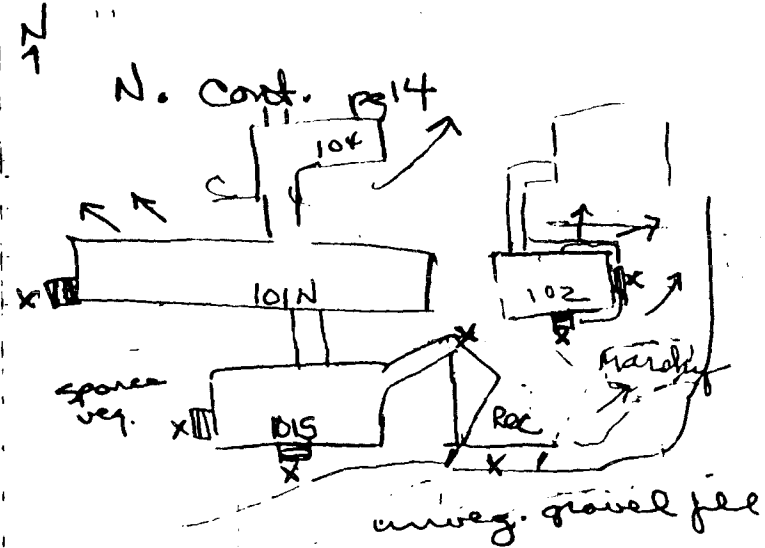 N
N. Cont. pg 14
104
101N
102
X
X
X
Marshy
sparce
veg.
X
101S
X
Rec
X
X
unveg. gravel fill